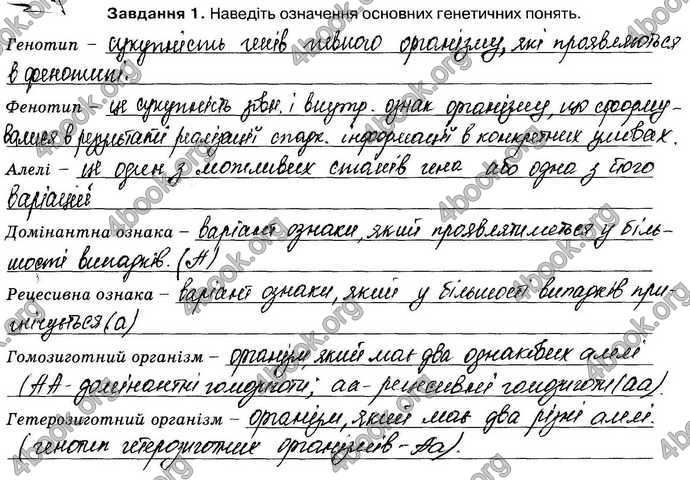 Завдання 1. Наведіть означення основних генетичних понять.
Генотип – сукупність генів певного організму, які проявляються
в фенотипі.
Фенотип – це сукупність зовн. і внутр. ознак організму, що сформу-
валися в результаті реалізації спадк. інформації в конкретних умовах.
Алелі – це один з можливих станів гена або одна з його
варіацій
Домінантна ознака – варіант ознаки, який проявлятиметься у біль-
шості випадків. (А)
Рецесивна ознака – варіант ознаки, який у більшості випадків при-
гнічується (а)
Гомозиготний організм – організм який має два однакових алелі
(АА - домінантні гомозиготи; аа - рецесивні гомозиготи (аа).
Гетерозиготний організм – організм, який має два різні алелі.
(генотип гетерозиготних організмів - Аа).
4book.org